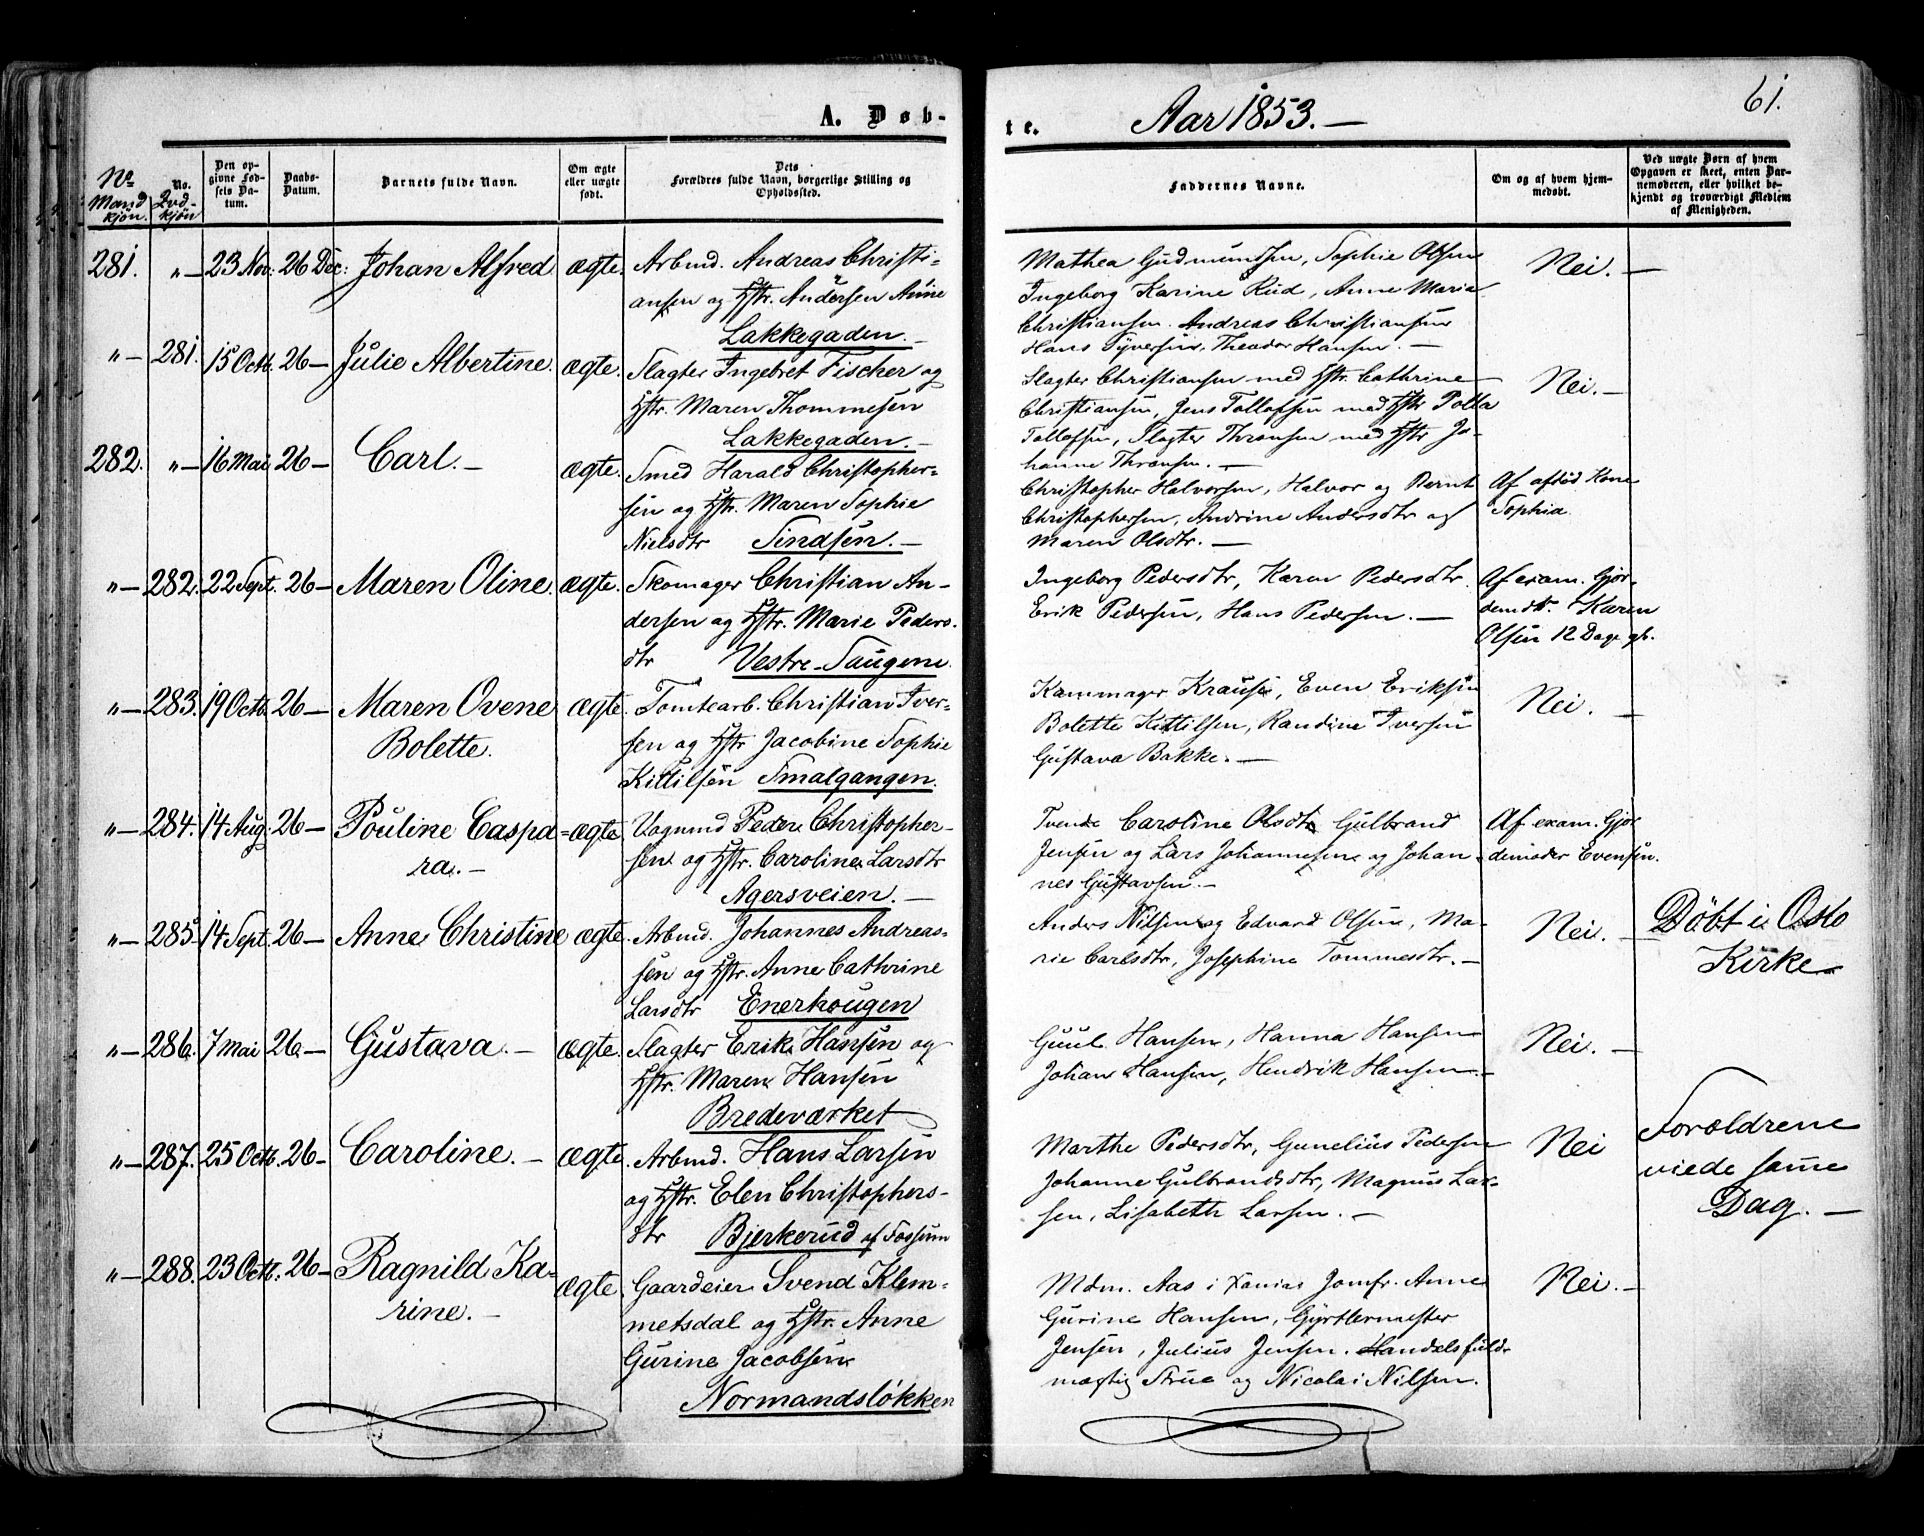 A. Døb-
te. Aar 1853.—
61.
No. Mandkjøn.
No. Qvdkjøn
Den opgivne Fødsels Datum.
Daabs-Datum.
Barnets fulde Navn.
Om ægte eller uægte født.
Dets Forældres fulde Navn, borgerlige Stilling og Opholdssted.
Faddernes Navne.
Om og af hvem hjemmedøbt.
Ved uægte Børn af hvem Opgaven er skeet, enten Barnemoderen, eller hvilket bekjendt og troværdigt Medlem af Menigheden.
281. „— 23 Nov: 26 Dec: Johan Alfred ægte. Arbmd. Andreas Christi-
ansen og Hstr. Andersen Anne
Lakkegaden.—
Mathea Gudmundsen, Sophie Olsen
Ingeborg Karine Rud, Anne Maria
Christiansen. Andreas Christiansen
Hans Syversen, Theodor Hansen.—
Nei.—
„— 281. 15 Octb. 26— Julie Albertine. ægte. Slagter Ingebret Fischer og
Hstr. Maren Thommesen
Lakkegaden.—
Slagter Christiansen med Hstr. Cathrine
Christiansen, Jens Tollefsen med Hstr
Tollefsen, Slagter Thronsen med Hstr Jo-
hanne Thronsen.—
Nei.—
282. „— 16 Mai 26— Carl.— ægte. Smed Harald Christopher-
sen og Hstr. Maren Sophie
Nielsdtr Sindsen.—
Christopher Halvorsen, Halvor og Bernt
Christophersen, Andrine Andersdtr og
Maren Olsdtr.—
Af Kone
Sophia.
„— 282. 22 Sept. 26— Maren Oline. ægte. Skomager Christian An-
dersen og Hstr. Marie Peders-
dtr Vestre-Saugene.
Ingeborg Pedersdtr, Karen Pedersdtr.
Erik Pedersen, Hans Pedersen.—
Af exam. Gjor-
demdr. Karen
Olsen 12 Dage gl.
„— 283. 19 Octb. 26— Maren Ovene
Bolette. ægte. Tomtearb. Christian Iver-
sen og Hstr Jacobine Sophie
Kittilsen Smalgangen.
Kammager Krause, Even Eriksen
Bolette Kittilsen, Randine Iversen
Gustava Bakke.—
Nei.—
„— 284. 14 Aug. 26— Pouline Caspa-
ra.— ægte Vognmd Peder Christopher-
sen og Hstr. Caroline Larsdtr
Agersveien.—
Tvende Caroline Olsdtr Gulbrand
Jensen og Lars Johannesen og Johan-
nes Gustavsen.—
Af exam. Gjor
demoder Evensen.
„— 285. 14 Sept. 26— Anne Christine ægte. Arbmd. Johannes Andreas-
sen og Hstr. Anne Cathrine
Larsdtr Enerhougen
Anders Nilsen og Edvard Olsen, Ma-
rie Carlsdtr, Josephine Tommesdtr.—
Nei.—
Döbt i Oslo
Kirke—
„— 286. 7 Mai 26— Gustava.— ægte. Slagter Erik Hansen og
Hstr. Maren Hansen
Bredeværket
Guul Hansen, Hanna Hansen
Johan Hansen, Hendrik Hansen.—
Nei.—
„— 287. 25 Octb. 26— Caroline.— ægte. Arbmd. Hans Larsen
og Hstr. Elen Christophers-
dtr Bjerkerud af Fossum
Marthe Pedersdtr, Gunelius Pedersen
Johanne Gulbrandsdtr, Magnus Lar-
sen, Lisabeth Larsen.—
Nei
Forældrene
viede samme
Dag.—
„— 288. 23 Octb. 26— Ragnild Ka-
rine.— ægte. Gaardeier Svend Klem-
metsdal og Hstr. Anne
Gurine Jacobsen
Normandsløkken
Mdm. Aas i Jomfr. Anne
Gurine Hansen, Gyrtlermester
Jensen, Julius Jensen. Handelsfuld-
mægtig Strue og Nicolai Nilsen.
Nei.—